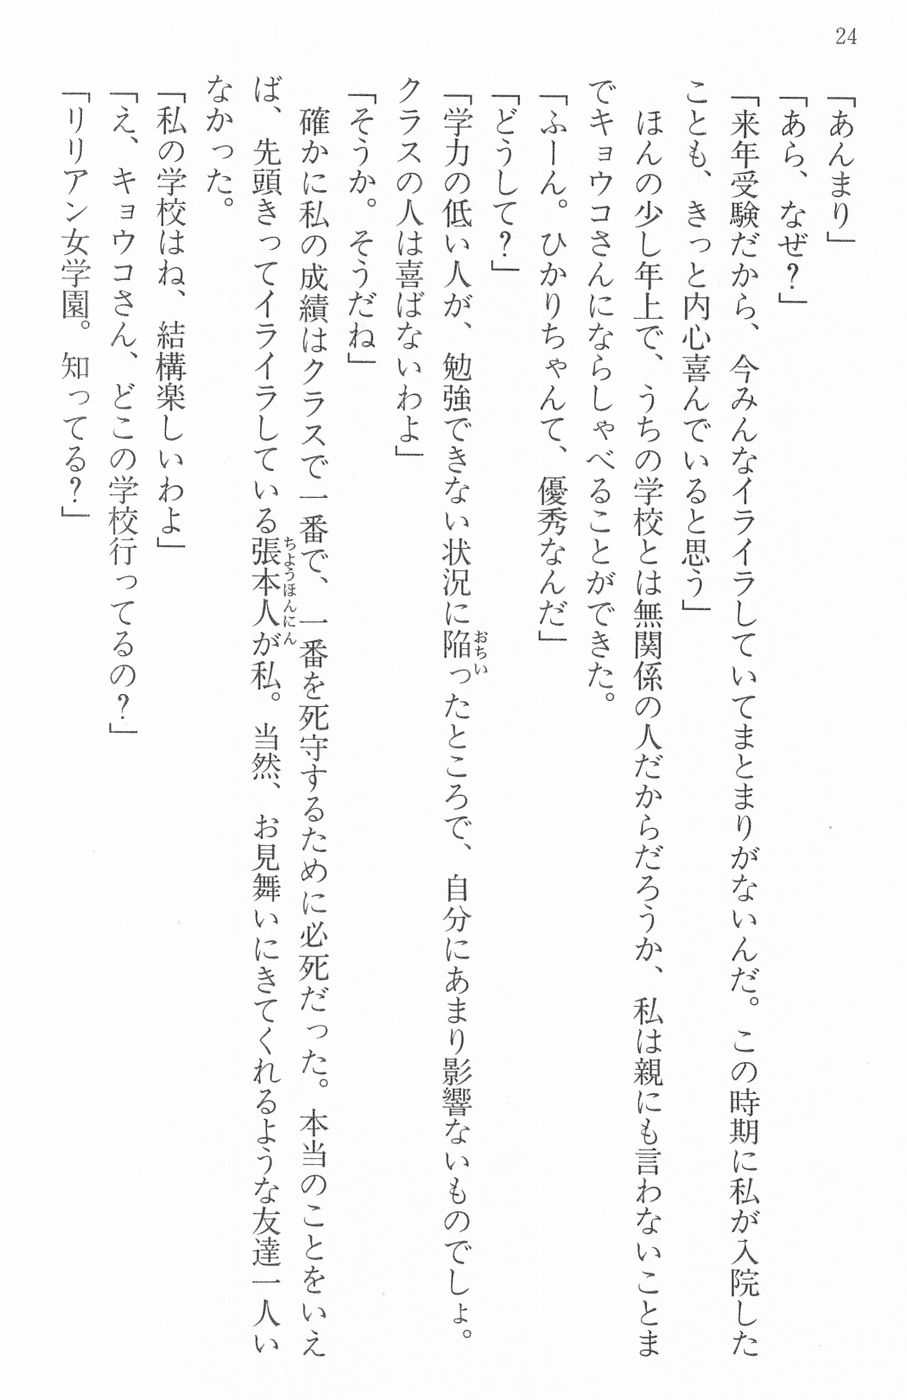 24
「あんまり」
「あら、なぜ？」
「来年受験だから、今みんなイライラしていてまとまりがないんだ。この時期に私が入院した
ことも、きっと内心喜んでいると思う」
　ほんの少し年上で、うちの学校とは無関係の人だからだろうか、私は親にも言わないことま
でキョウコさんにならしゃべることができた。
「ふーん。ひかりちゃんて、優秀なんだ」
「どうして？」
「学力の低い人が、勉強できない状況に陥ったところで、自分にあまり影響ないものでしょ。
おちい
クラスの人は喜ばないわよ」
「そうか。そうだね」
　確かに私の成績はクラスで一番で、一番を死守するために必死だった。本当のことをいえ
ば、先頭きってイライラしている張本人が私。当然、お見舞いにきてくれるような友達一人い
ちようほんにん
なかった。
「私の学校はね、結構楽しいわよ」
「え、キョウコさん、どこの学校行ってるの？」
「リリアン女学園。知ってる？」